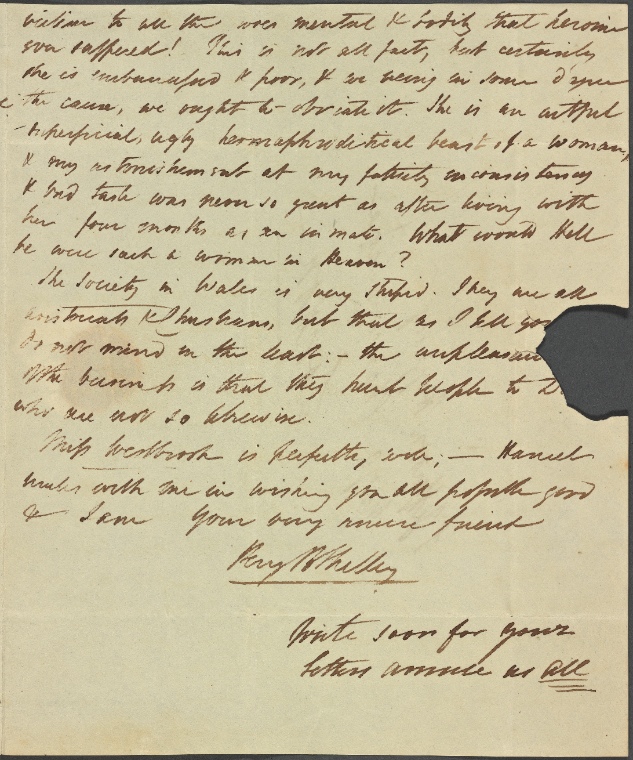 victim to all the woes mental & bodily that heroine
ever suffered! This is not all fact, but certainly
she is embarrassed & poor, & we being in some degree
the cause, we ought to obviate it. She is an artful
superficial, ugly hermaphroditical beast of a woman,
& my astonishment at my fatuity inconsistency
& bad taste was never so great as after living with
her four months as an inmate. What would Hell
be were such a woman in Heaven?
The Society in Wales is very stupid. They are all
aristocrats & but that as I tell you
do not mind in the least; — the unpleasant
of the business is that they hunt people to
who are not so likewise.
Miss Westbrook is perfectly well; — Harriet
unites with me in wishing you all possible good
& I am Your very sincere friend
Percy B Shelley
Write soon for your
letters amuse us all